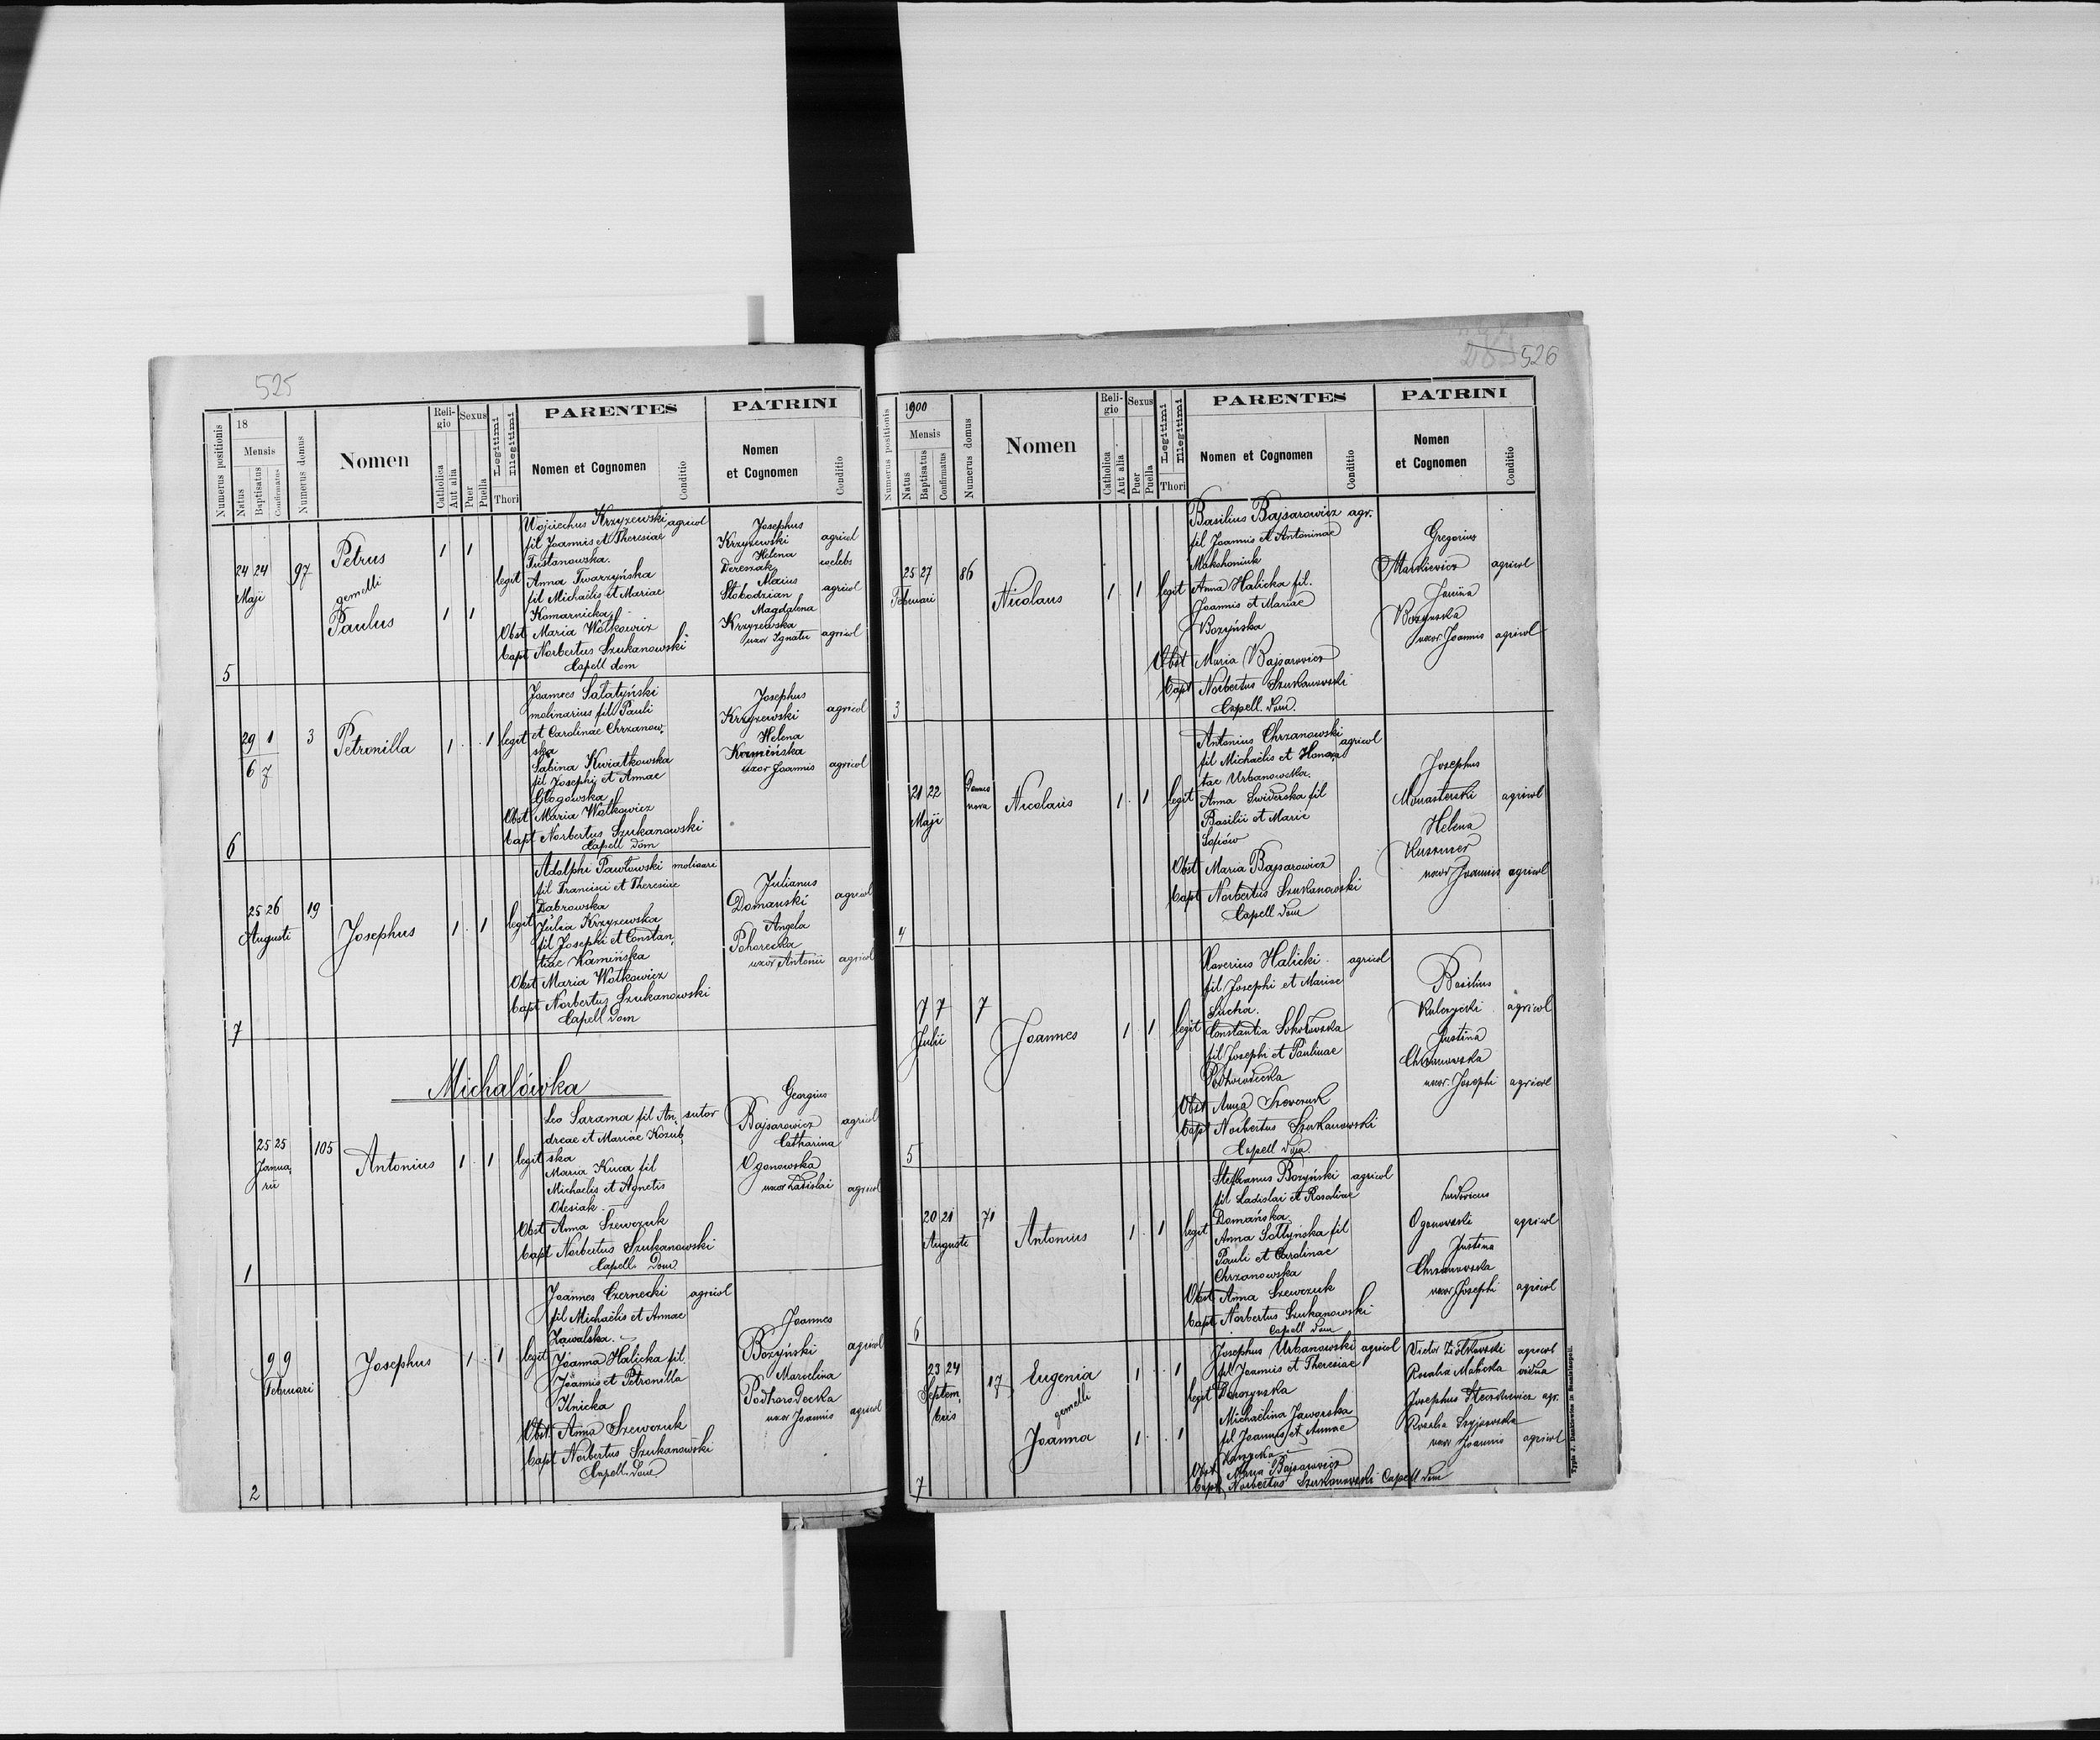 525
Numerus positionis
18
Mensis
Natus
Baptisatus
Confirmatus
Numerus domus
Nomen
Religio
Catholica
Aut alia
Sexus
Puer
Puella
Legitimi
Illegitimi
Thori
PARENTES
Nomen et Cognomen
Conditio
PATRINI
Nomen
et Cognomen
Conditio
5
24 24
Maji
97
Petrus
gemelli
Paulus
1 1
1 1
legit
Wojciechus Krzyżewski agricol
fil Joannis et Theresiae
Tustanowska.
Anna Twarzyńska
fil Michaelis et Mariae
Komarnicka
Obst Maria Wołkowicz
Bapt Norbertus Szukanowski
Capell dom
Josephus
Krzyżewski agricol
Helena
Dereszak coelebs
Słobodzian agricol
Magdalena
Krzyżewska
uxor Ignatii agricol
6
29 1
6 7
3
Petronilla
1 1
legit
Joannes Sałatyński
molinarius fil Pauli
et Carolinae Chrzanow,
ska
Sabina Kwiatkowska
fil Josephi et Annae
Głogowska
Obst Maria Wołkowicz
Bapt Norbertus Szukanowski
Capell dom
Josephus
Krzyżewski agricol
Helena
Kamińska
uxor Joannis agricol
7
25 26
Augusti
19
Josephus
1 1
legit
Adolphi Pawłowski molinari
fil Francisci et Theresiae
Dabrowska
Julia Krzyżewska
fil Josephi et Constan,
tiae Kamińska
Obst Maria Wołkowicz
Bapt Norbertus Szukanowski
Capell Dom
Julianus
Domanski agricol
Angela
Pohorecka
uxor Antonii agricol
Michalówka
1
25 25
Janua,
rii
105
Antonius
1 1
legit
Leo Sarama fil An, sutor
dreae et Mariae Kozub,
ska
Maria Kuca fil
Michaelis et Agnetis
Olesiak
Obst Anna Szewczuk
Bapt Norbertus Szukanowski
Capell Dom
Georgius
Bajsarowicz agricol
Catharina
Ogonowska
uxor Ladislai agricol
2
9 9
Februari
Josephus
1 1
legit
Joannes Czernecki agricol
fil Michaelis et Annae
Zawalska
Joanna Halicka fil
Joannis et Petronilla
Ilnicka
Obst Anna Szewczuk
Bapt Norbertus Szukanowski
Capell. Dom
Joannes
Bożyński agricol
Marcelina
Podhorodecka
uxor Joannis agricol
526
Numerus positionis
1900
Mensis
Natus
Baptisatus
Confirmatus
Numerus domus
Nomen
Religio
Catholica
Aut alia
Sexus
Puer
Puella
Legitimi
Illegitimi
Thori
PARENTES
Nomen et Cognomen
Conditio
PATRINI
Nomen
et Cognomen
Conditio
3
25 27
Februari
86
Nicolaus
1 1
legit
Basilius Bajsarowicz agr.
fil Joannis et Antoninae
Makohoniuk
Anna Halicka fil.
Joannis et Mariae
Bożyńska
Obst Maria Bajsarowicz
Bapt Norbertus Szukanowski
Capell. Dom.
Gregorius
Markiewicz agricol
Janina
Bożyńska
uxor Joannis agricol
4
21 22
Maji
Domus
nova
Nicolaus
1 1
legit
Antonius Chrzanowski agricol
fil Michaelis et Honora
tae Urbanowska.
Anna Swiderska fil
Basilii et Marie
Obst Maria Bajsarowicz
Bapt Norbertus Szukanowski
Capell Dom
Josephus
Monasterski agricol
Helena
Kuszner
uxor Joannis agricol
5
7 7
Julii
7
Joannes
1 1
legit
Xaverius Halicki agricol
fil Josephi et Mariae
Sucha.
Constantia Sokołowska
fil Josephi et Paulinae
Podhorodecka
Obst Anna Szewczuk
Bapt Norbertus Szukanowski
Capell Dom.
Basilius
Kulczycki agricol
Justina
Chrzanowska
uxor Josephi agricol
6
20 21
Augusti
71
Antonius
1 1
legit
Stephanus Bożyński agricol
fil Ladislai et Rosaliae
Domańska
Anna Sołtyńska fil
Pauli et Carolinae
Chrzanowska
Obst Anna Szewczuk
Bapt Norbertus Szukanowski
Capell Dom
Ludovicus
Ogonowski agricol
Justina
Chrzanowska
uxor Josephi agricol
7
23 24
Septem,
bris
17
Eugenia
gemelli
Joanna
1 1
1 1
legit
Josephus Urbanowski agricol
fil Joannis et Theresiae
Michaelina Jaworska
fil Joannis et Annae
Obst Maria Bajsarowicz
Bapt Norbertus Szukanowski Capell Dom
Victor Ziołkowski agricol
Rosalia Malicka vidua
Josephus agr.
Rosalia
uxor Joannis agricol
Typis J. Dankiewicz in Stanislaopoli.